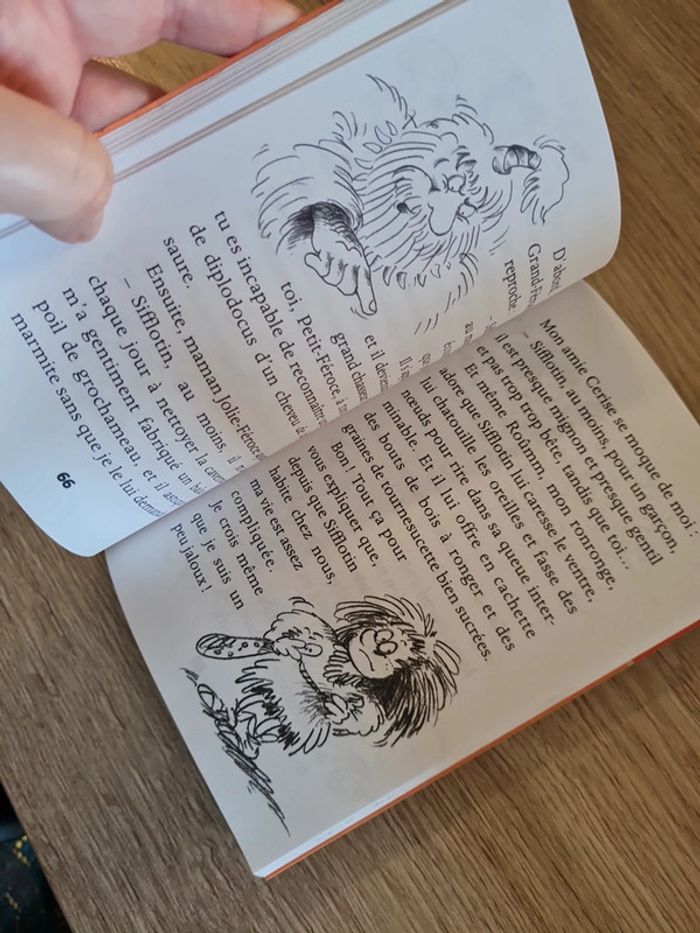 D'abord,
Grand-Fér
reproche
au m
et il deve
grand chasse
toi, Petit-Féroce, à
tu es incapable de reconnaître
de diplodocus d'un cheveu de
saure.
Ensuite, maman Jolie-Féroce
– Sifflotin, au moins, il m
chaque jour à nettoyer la cave
m'a gentiment fabriqué un
poil de grochameau, et il
marmite sans que je le lui
66
Mon amie Cerise se moque de moi :
– Sifflotin, au moins, pour un garçon,
il est presque mignon et presque gentil
et pas trop trop bête, tandis que toi...
Et même Roûmm, mon ronronge,
adore que Sifflotin lui caresse le ventre,
lui chatouille les oreilles et fasse des
nœuds pour rire dans sa queue inter-
minable. Et il lui offre en cachette
des bouts de bois à ronger et des
graines de tournesucette bien sucrées.
Bon ! Tout ça pour
vous expliquer que,
depuis que Sifflotin
habite chez nous,
ma vie est assez
compliquée.
Je crois même
que je suis un
peu jaloux !